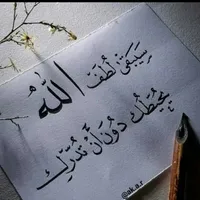 سيبقى لطف
الله
يحيطك دون أن تدرك
@ak.a.r